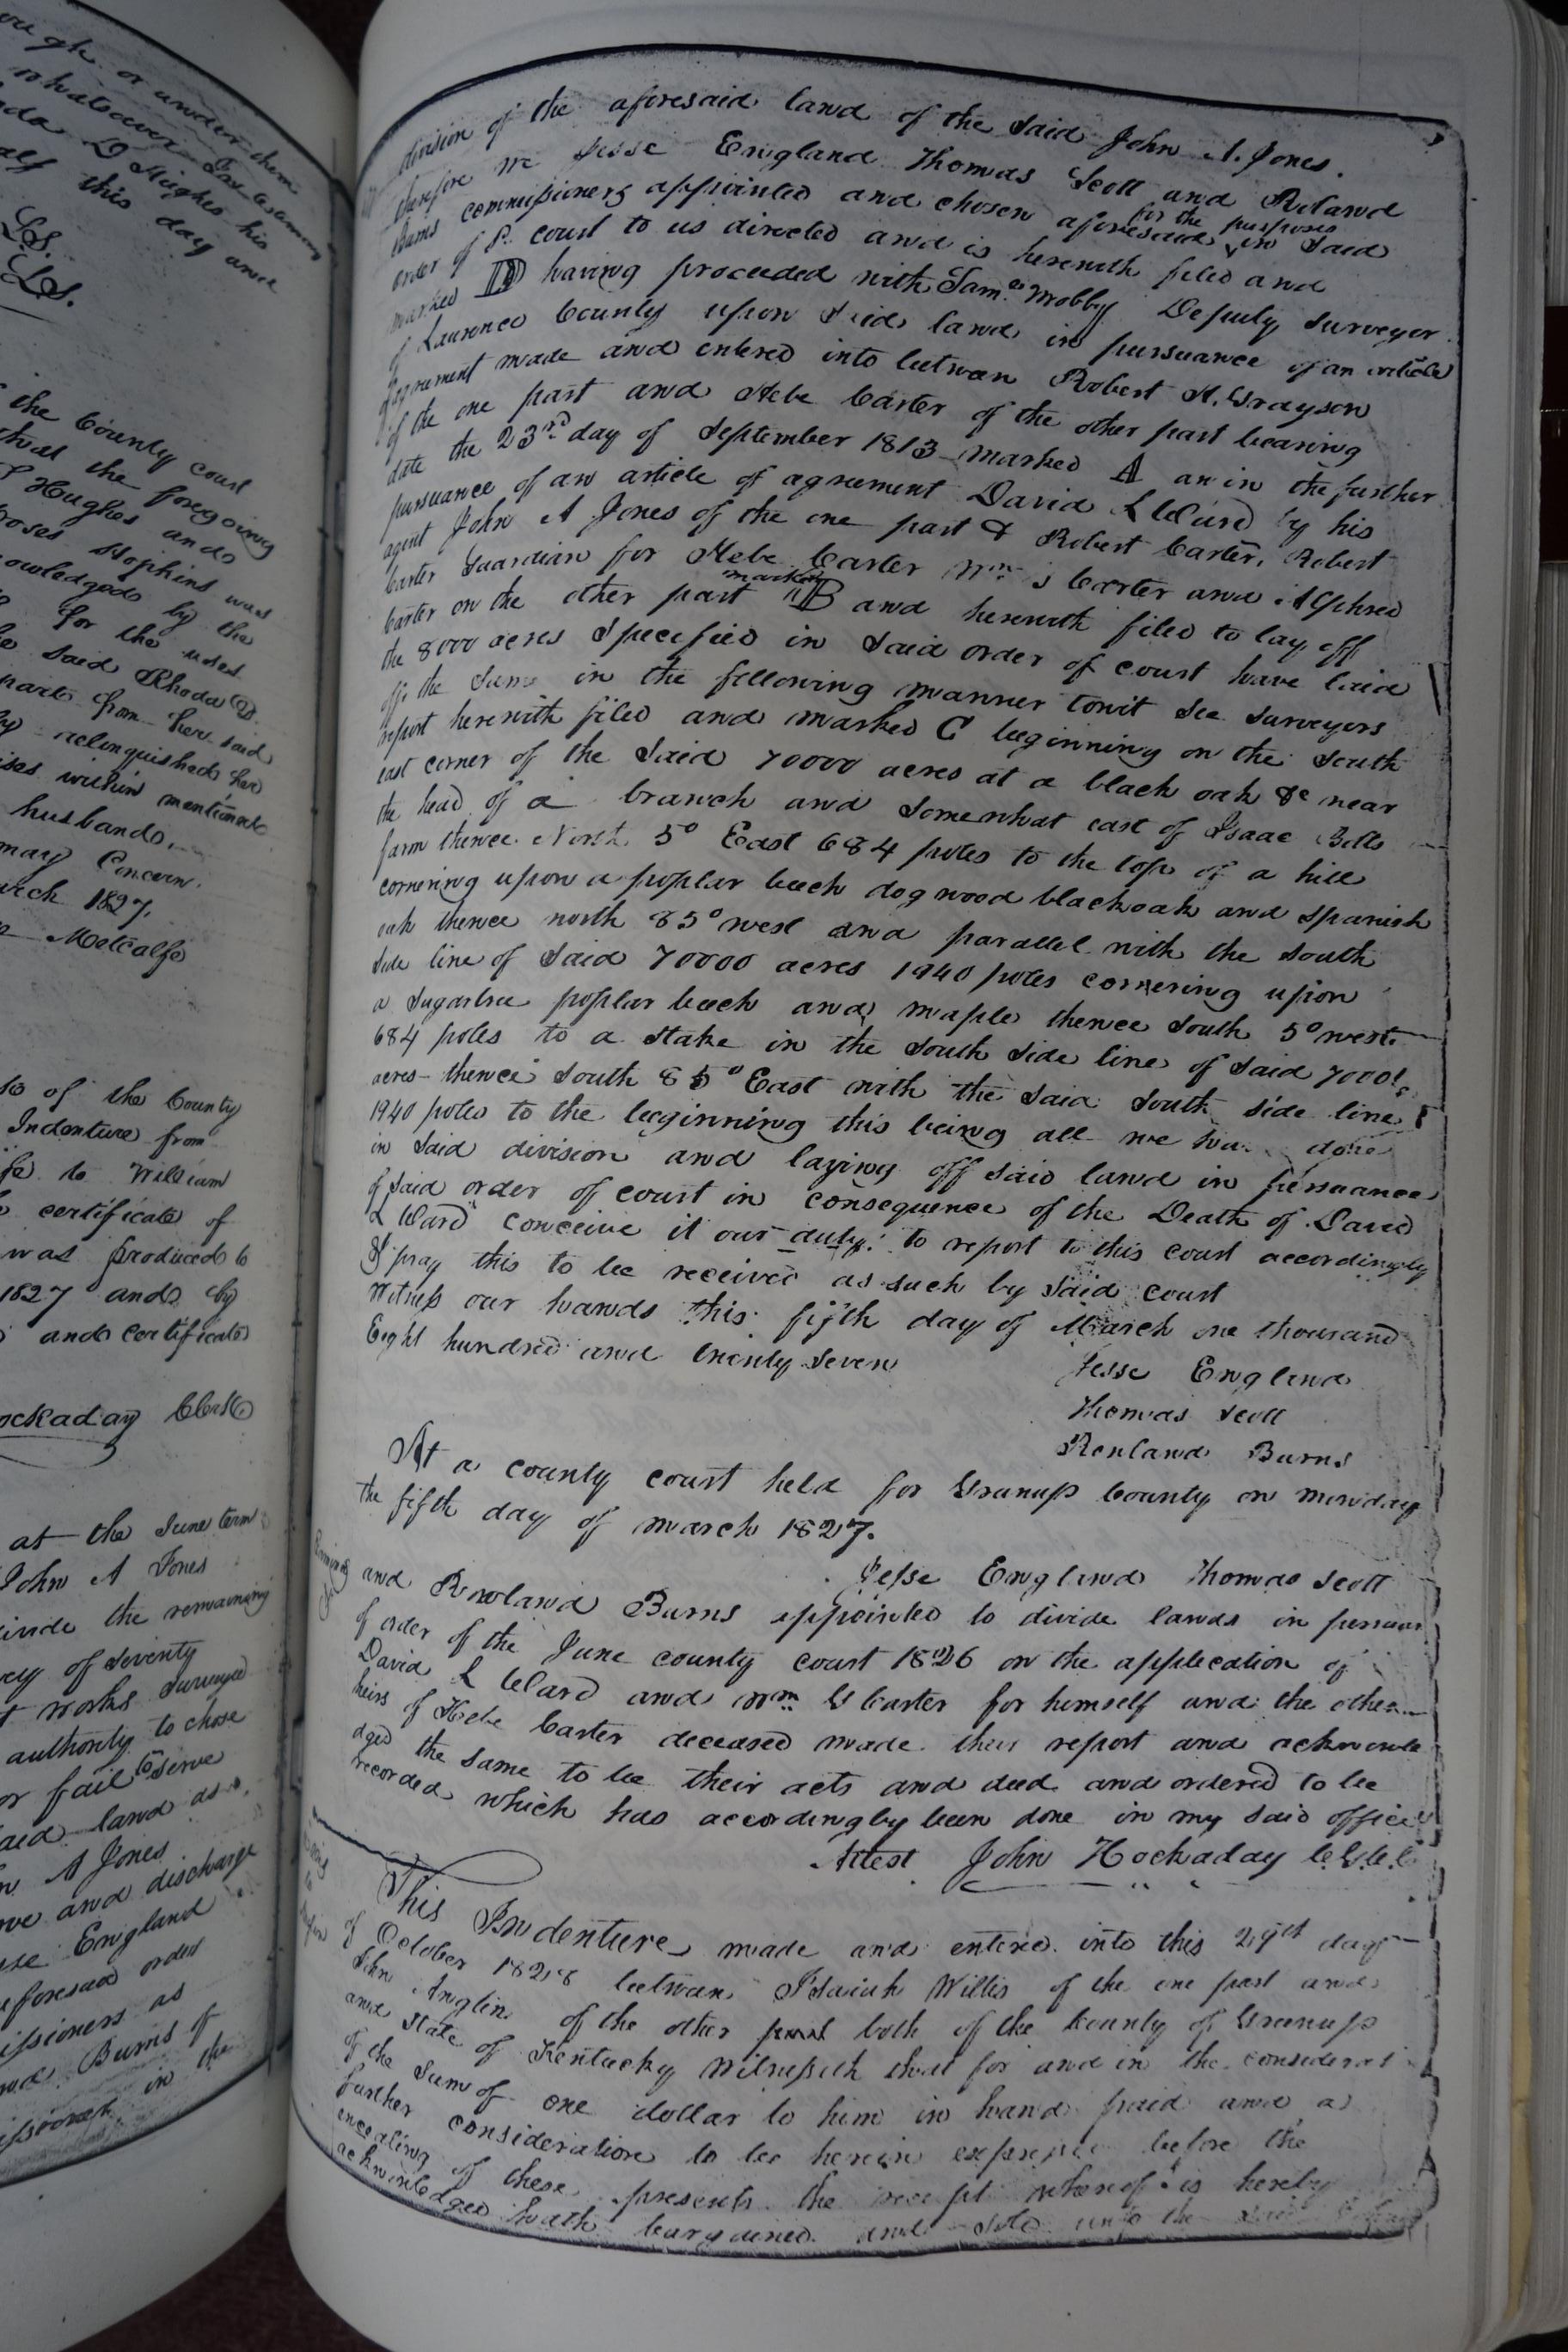 ugh or under them
whatsoever In testimony
D Hughes his
this day and
L.S.
L.S.
the County court
that the foregoing
Hughes and
Hopkins was
owledged by the
for the uses
said Rhoda D.
part from her said
relinquished her
within mentioned
husband.
may Concern.
arch 1827,
Metcalfe
of the County
Indenture from
to William
certificate of
was produced to
1827 and by
and certificate
ockaday Clerk
at the June term
John A Jones
ivide the remaining
of Seventy
works Surveyed
authority to chose
or fail to serve
aid land as
A Jones
and discharge
England
aforesaid order
issioners as
Burns of
in the
division of the aforesaid land of the said John A. Jones.
therefore we Jesse England Thomas Scott and Roland
Burns commissioners appointed and chosen aforesaid for the purposes in said
order of Sd. court to us directed and is herewith filed and
marked D having proceeded with Saml. Mobby Deputy surveyor
of Laurence County upon said land in pursuance of an article
of agreement made and entered into between Robert H. Grayson
of the one part and Hebe Carter of the other part bearing
date the 23rd day of September 1813 marked A an in the further
pursuance of an article of agreement David L Ward by his
agent John A Jones of the one part & Robert Carter, Robert
Carter Guardian for Hebe Carter Wm s Carter and Alphred
Carter on the other part marked B and herewith filed to lay off
the 8000 acres specified in said order of court have laid
off the same in the following manner towit see surveyors
report herewith filed and marked C beginning on the south
east corner of the said 70000 acres at a black oak &c near
the head of a branch and somewhat east of Isaac Bolts
farm thence North 5° East 684 poles to the top of a hill
cornering upon a poplar beech dogwood blackoak and spanish
oak thence north 85° west and parallel with the south
side line of said 70000 acres 1940 poles cornering upon
a sugartree poplar beech and maple thence south 5° west
684 poles to a stake in the south side line of said 7000
acres thence south 85° East with the said south side line
1940 poles to the beginning this being all we have done
in said division and laying off said land in persuance
of said order of court in consequence of the Death of David
L Ward conceive it our duty to report to this court accordingly
& pray this to be received as such by said court
Witness our hands this fifth day of March one thousand
Eight hundred and twenty seven
Jesse England
Thomas Scott
Renland Burns
At a county court held for Greenup County on monday
the fifth day of march 1827.
Jesse England Thomas Scott
and Rowland Burns appointed to divide lands in persuan
of order of the June county court 1826 on the application of
David L Ward and Wm G Carter for himself and the other
heirs of Hebe Carter deceased made their report and acknowle
dged the same to be their acts and deed and ordered to be
recorded which has accordingly been done in my said office
Attest John Hockaday C.G.C.C
This Indenture made and entered into this 29th day
of October 1828 between Isaiah Willis of the one part and
John Anglin of the other part both of the County of Greenup
and state of Kentucky Witnesseth that for and in the considerat
of the sum of one dollar to him in hand paid and a
further consideration to be herein expresed before the
ensealing of these presents the receipt whereof is hereby
acknowledged hath bargained and sold unto the said